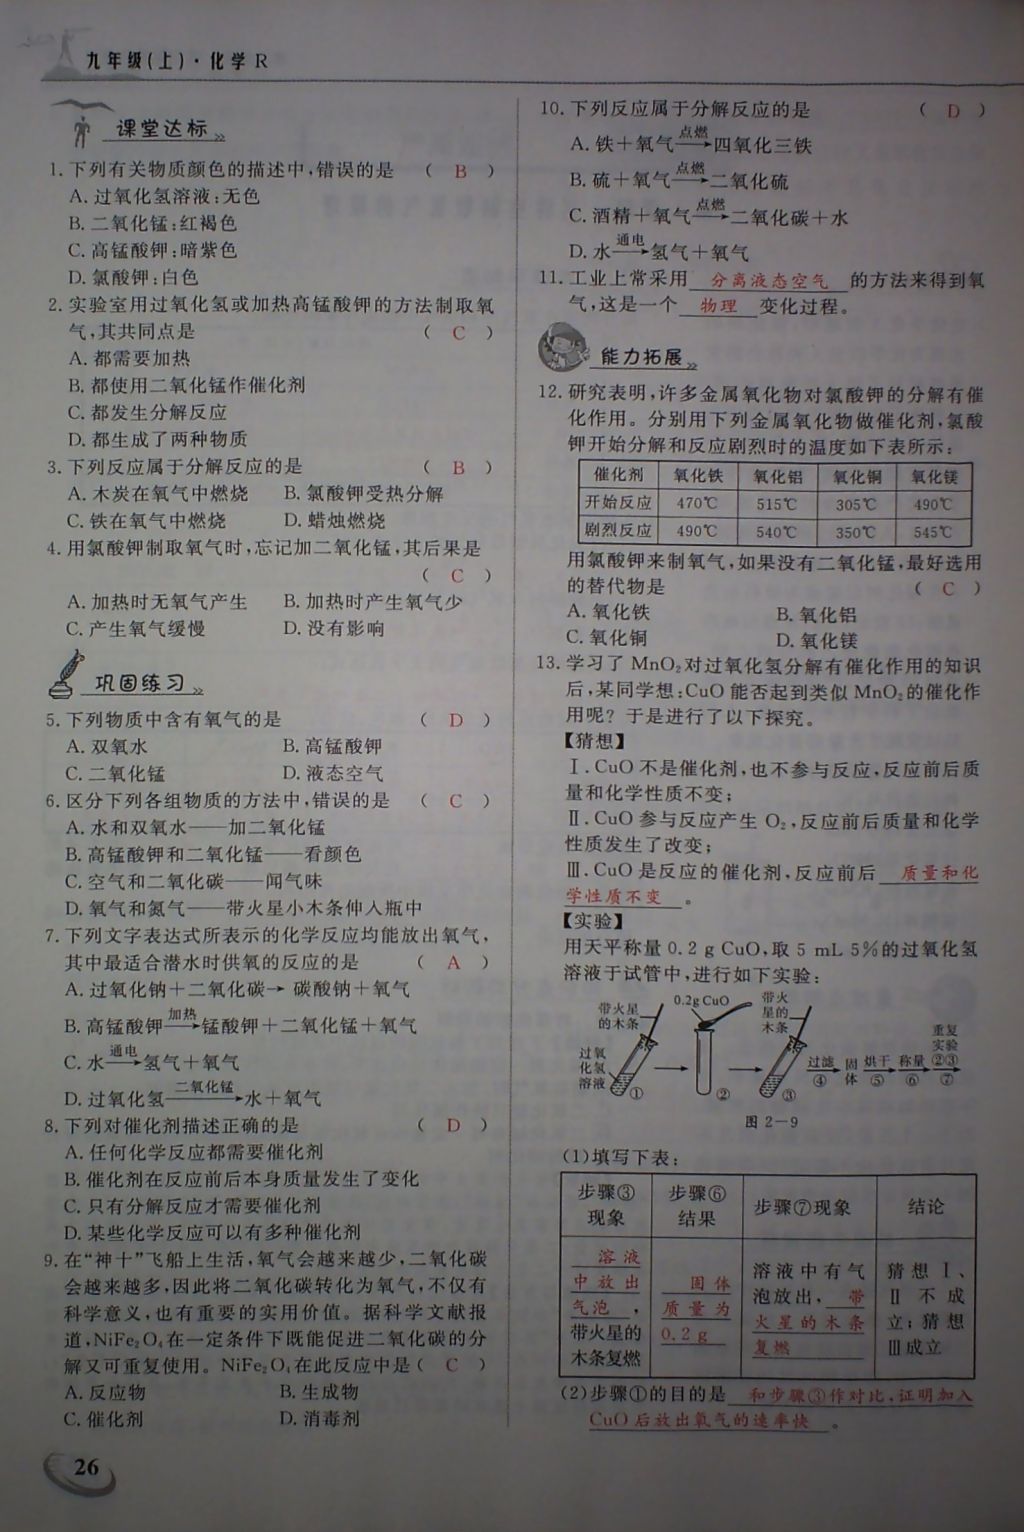 九年级(上)·化学 R
课堂达标
1. 下列有关物质颜色的描述中,错误的是 ( B )
A. 过氧化氢溶液:无色
B. 二氧化锰:红褐色
C. 高锰酸钾:暗紫色
D. 氯酸钾:白色
2. 实验室用过氧化氢或加热高锰酸钾的方法制取氧
气,其共同点是 ( C )
A. 都需要加热
B. 都使用二氧化锰作催化剂
C. 都发生分解反应
D. 都生成了两种物质
3. 下列反应属于分解反应的是 ( B )
A. 木炭在氧气中燃烧 B. 氯酸钾受热分解
C. 铁在氧气中燃烧 D. 蜡烛燃烧
4. 用氯酸钾制取氧气时,忘记加二氧化锰,其后果是
( C )
A. 加热时无氧气产生 B. 加热时产生氧气少
C. 产生氧气缓慢 D. 没有影响
巩固练习
5. 下列物质中含有氧气的是 ( D )
A. 双氧水 B. 高锰酸钾
C. 二氧化锰 D. 液态空气
6. 区分下列各组物质的方法中,错误的是 ( C )
A. 水和双氧水——加二氧化锰
B. 高锰酸钾和二氧化锰——看颜色
C. 空气和二氧化碳——闻气味
D. 氧气和氮气——带火星小木条伸入瓶中
7. 下列文字表达式所表示的化学反应均能放出氧气,
其中最适合潜水时供氧的反应的是 ( A )
A. 过氧化钠+二氧化碳→碳酸钠+氧气
B. 高锰酸钾 加热→ 锰酸钾+二氧化锰+氧气
C. 水 通电→ 氢气+氧气
D. 过氧化氢 二氧化锰→ 水+氧气
8. 下列对催化剂描述正确的是 ( D )
A. 任何化学反应都需要催化剂
B. 催化剂在反应前后本身质量发生了变化
C. 只有分解反应才需要催化剂
D. 某些化学反应可以有多种催化剂
9. 在“神十”飞船上生活,氧气会越来越少,二氧化碳
会越来越多,因此将二氧化碳转化为氧气,不仅有
科学意义,也有重要的实用价值。据科学文献报
道,NiFe₂O₄在一定条件下既能促进二氧化碳的分
解又可重复使用。NiFe₂O₄在此反应中是( C )
A. 反应物 B. 生成物
C. 催化剂 D. 消毒剂
26
10. 下列反应属于分解反应的是 ( D )
A. 铁+氧气 点燃→ 四氧化三铁
B. 硫+氧气 点燃→ 二氧化硫
C. 酒精+氧气 点燃→ 二氧化碳+水
D. 水 通电→ 氢气+氧气
11. 工业上常采用 分离液态空气 的方法来得到氧
气,这是一个 物理 变化过程。
能力拓展
12. 研究表明,许多金属氧化物对氯酸钾的分解有催
化作用。分别用下列金属氧化物做催化剂,氯酸
钾开始分解和反应剧烈时的温度如下表所示:
催化剂 氧化铁 氧化铝 氧化铜 氧化镁
开始反应 470℃ 515℃ 305℃ 490℃
剧烈反应 490℃ 540℃ 350℃ 545℃
用氯酸钾来制氧气,如果没有二氧化锰,最好选用
的替代物是 ( C )
A. 氧化铁 B. 氧化铝
C. 氧化铜 D. 氧化镁
13. 学习了 MnO₂对过氧化氢分解有催化作用的知识
后,某同学想:CuO 能否起到类似 MnO₂的催化作
用呢? 于是进行了以下探究。
【猜想】
Ⅰ. CuO 不是催化剂,也不参与反应,反应前后质
量和化学性质不变;
Ⅱ. CuO 参与反应产生 O₂,反应前后质量和化学
性质发生了改变;
Ⅲ. CuO 是反应的催化剂,反应前后 质量和化
学性质不变 。
【实验】
用天平称量 0.2 g CuO,取 5 mL 5%的过氧化氢
溶液于试管中,进行如下实验:
带火星
的木条
过氧
化氢
溶液
①
0.2g CuO
②
带火
星的
木条
③
过滤
④
固
体
烘干
⑤
称量
⑥
重复
实验
②③
⑦
图 2-9
(1)填写下表:
步骤③
现象
步骤⑥
结果
步骤⑦现象
结论
溶液
中放出
气泡 ,
带火星的
木条复燃
固体
质量为
0.2 g
溶液中有气
泡放出, 带
火星的木条
复燃
猜想Ⅰ、
Ⅱ不成
立;猜想
Ⅲ成立
(2)步骤①的目的是 和步骤③作对比,证明加入
CuO 后放出氧气的速率快 。